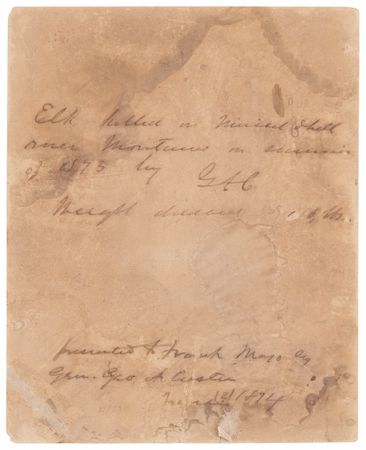 Elk killed on Muscel Shell
river Montana in summer
of 1873 by
GAC
Weight dressed lbs.
presented to Frank Mayo by
Gen. Geo A Custer
1874